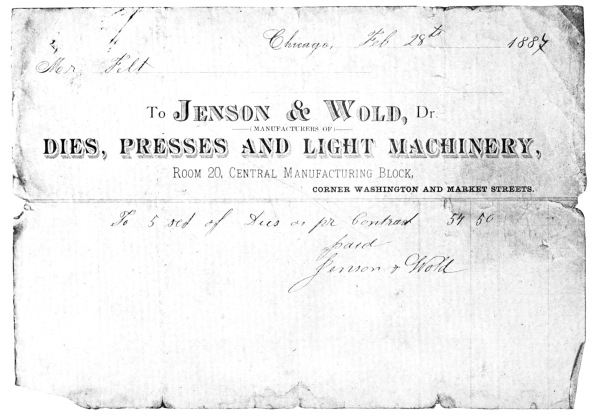 Chicago, Feb 28th 1887
Mr. Felt
To Jenson & Wold, Dr.
MANUFACTURERS OF
DIES, PRESSES AND LIGHT MACHINERY,
ROOM 20, CENTRAL MANUFACTURING BLOCK,
CORNER WASHINGTON AND MARKET STREETS.
To 5 set of Dies as pr Contract 54 50
paid
Jenson & Wold